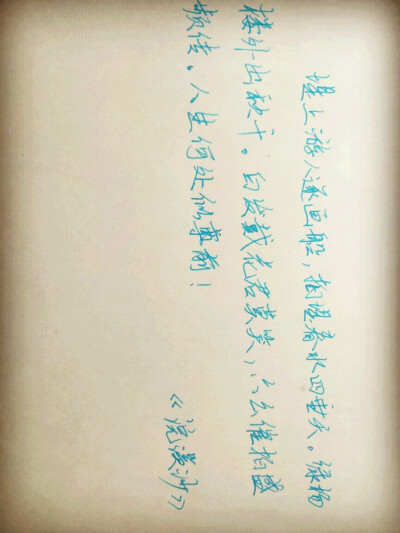 堤上游人逐画船，拍堤春水四垂天。绿杨
楼外出秋千。白发戴花君莫笑，六幺催拍盏
频传。人生何处似尊前！
《浣溪沙》